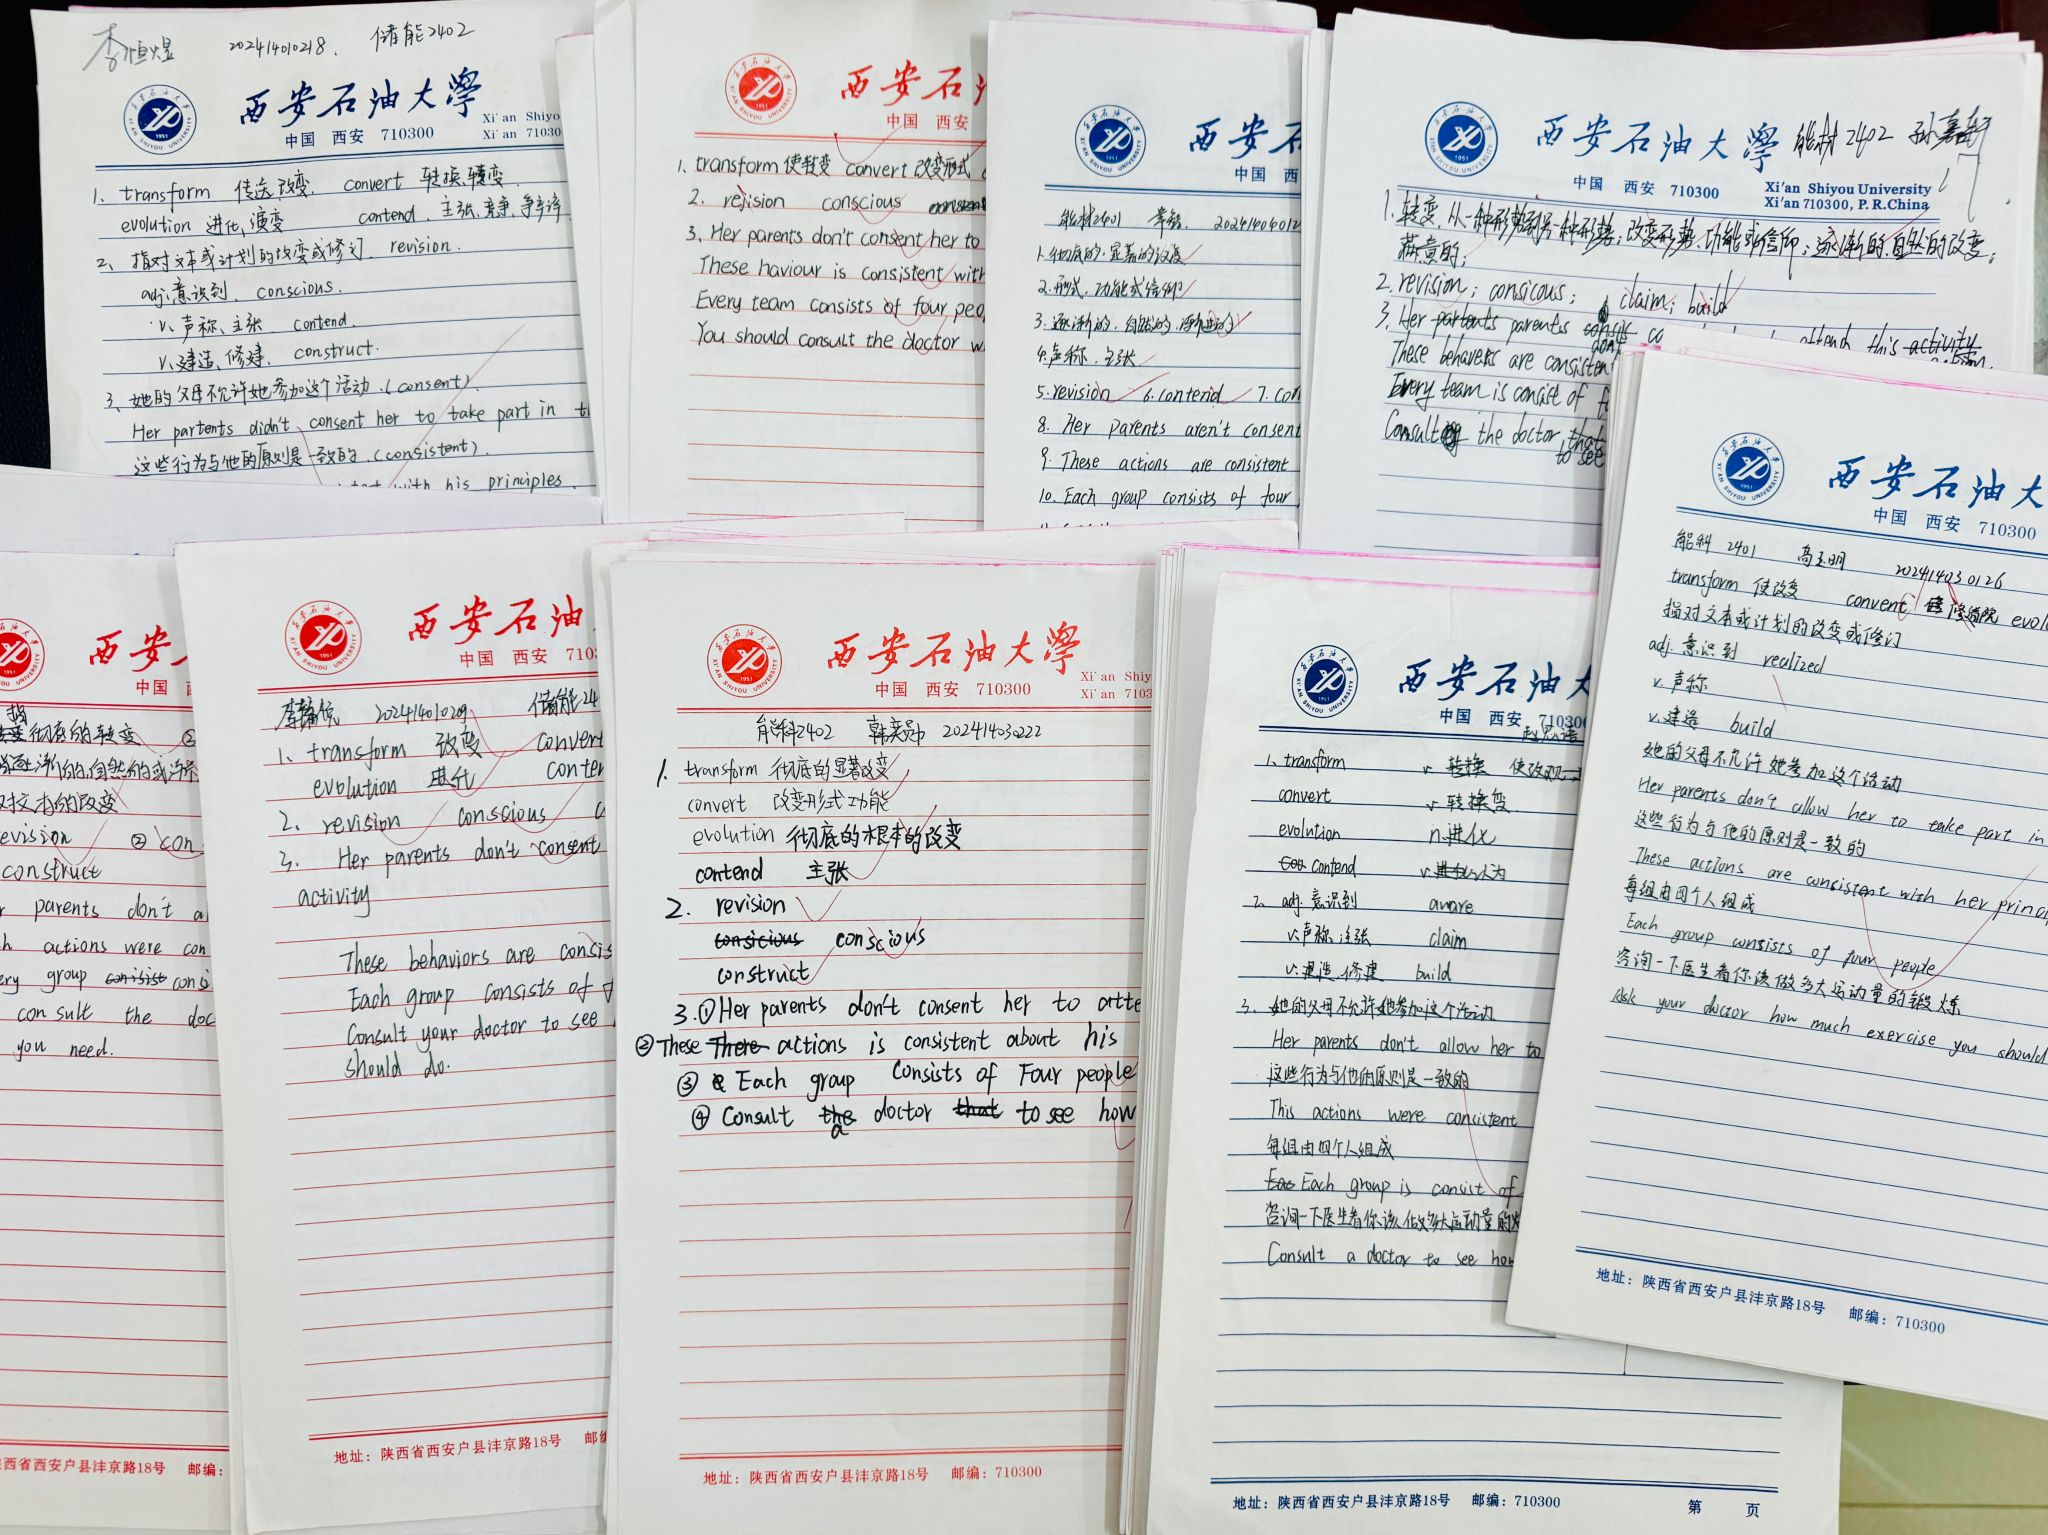 李恒煜 202414010218. 储能2402
西安石油大学
中国 西安 710300
Xi'an Shiyo
Xi'an 7103
1. transform 传送,改变. convert 转换,转变.
evolution 进化,演变 contend. 主张,竞争,争辩
2. 指对文本或计划的改变或修订. revision.
adj.意识到. conscious.
v. 声称、主张 contend.
v.建造、修建. construct.
3. 她的父母不允许她参加这个活动.(consent).
Her partents didn't consent her to take part in t
这些行为与他的原则是一致的.(consistent).
with his principles.
西安石
中国 西安
1. transform 使转变 convert 改变形式
2. rejision conscious
3. Her parents don't consent her to
These haviour is consistent with
Every team consists of four peo
You should consult the doctor w
西安石
中国 西安
能材2401
1.彻底的.显著的改变
2.形式,功能或信仰
3.逐渐的,自然的,
4.声称,主张
5.revision 6.contend 7.con
8. Her parents aren't consent
9. These actions are consistent
10. Each group consists of four
西安石油大学 能材2402 孙嘉
中国 西安 710300
Xi'an Shiyou University
Xi'an 710300, P.R.China
1.转变,从一种形势到另一种形势;改变形势.功能或信仰;逐渐的.自然的改变;
蓄意的;
2.revision; consicous; claim; build
3. Her partents parents
attend this activity
These behavers are consisten
Every team is consist of f
Consult the doctor that
to see
西安石油大
中国 西安 710300
能科 2401 高玉明 202414030126
transform 使改变 convent 修道院 evol
指对文本或计划的改变或修订
adj. 意识到 realized
v.声称
v.建造 build
她的父母不允许她参加这个活动
Her parents don't allow her to take part in
这些行为与他的原则是一致的
These actions are consistent with her princi
每组由四个人组成
Each group consists of four people
咨询一下医生看你该做多大运动量的锻炼
Ask your doctor how much exercise you should
地址：陕西省西安户县沣京路18号 邮编：710300
西安
中国
彻底的转变 ②
对文本的改变
evision ② con
construct
r parents don't a
h actions were con
ery group consist consi
consult the doc
you need.
西省西安户县沣京路18号 邮编：
西安石油
中国 西安 710
202414010209 储能24
1. transform 改变 convert
evolution 进化 conte
2. revision conscious
3. Her parents don't consent
activity
These behaviors are consis
Each group consists of f
Consult your doctor to see
should do.
地址：陕西省西安户县沣京路18号 邮编
西安石油大学
中国 西安 710300
Xi'an Shiy
Xi'an 7103
能科2402 韩奕勋 202414030222
1. transform 彻底的显著改变
convert 改变形式功能
evolution 彻底的根本的改变
contend 主张
2. revision
consicious conscious
construct
3.①Her parents don't consent her to atte
②These There actions is consistent about his
③ Each group consists of four people
④ Consult the doctor that to see how
a
地址：陕西省西安户县沣京路18号 邮编：710300
西安石油大
中国 西安 710300
1. transform v. 转换 使改观
convert v.转换变
evolution n.进化
contend v.认为
2. adj.意识到 aware
v.声称 主张 claim
v.建造.修建 build
3. 她的父母不允许她参加这个活动
Her parents don't allow her to
这些行为与他的原则是一致的
This actions were concistent
每组由四个人组成
Each group is consist of
咨询一下医生看你该做多大运动量的
Consult a doctor to see how
地址：陕西省西安户县沣京路18号 邮编：710300 第 页